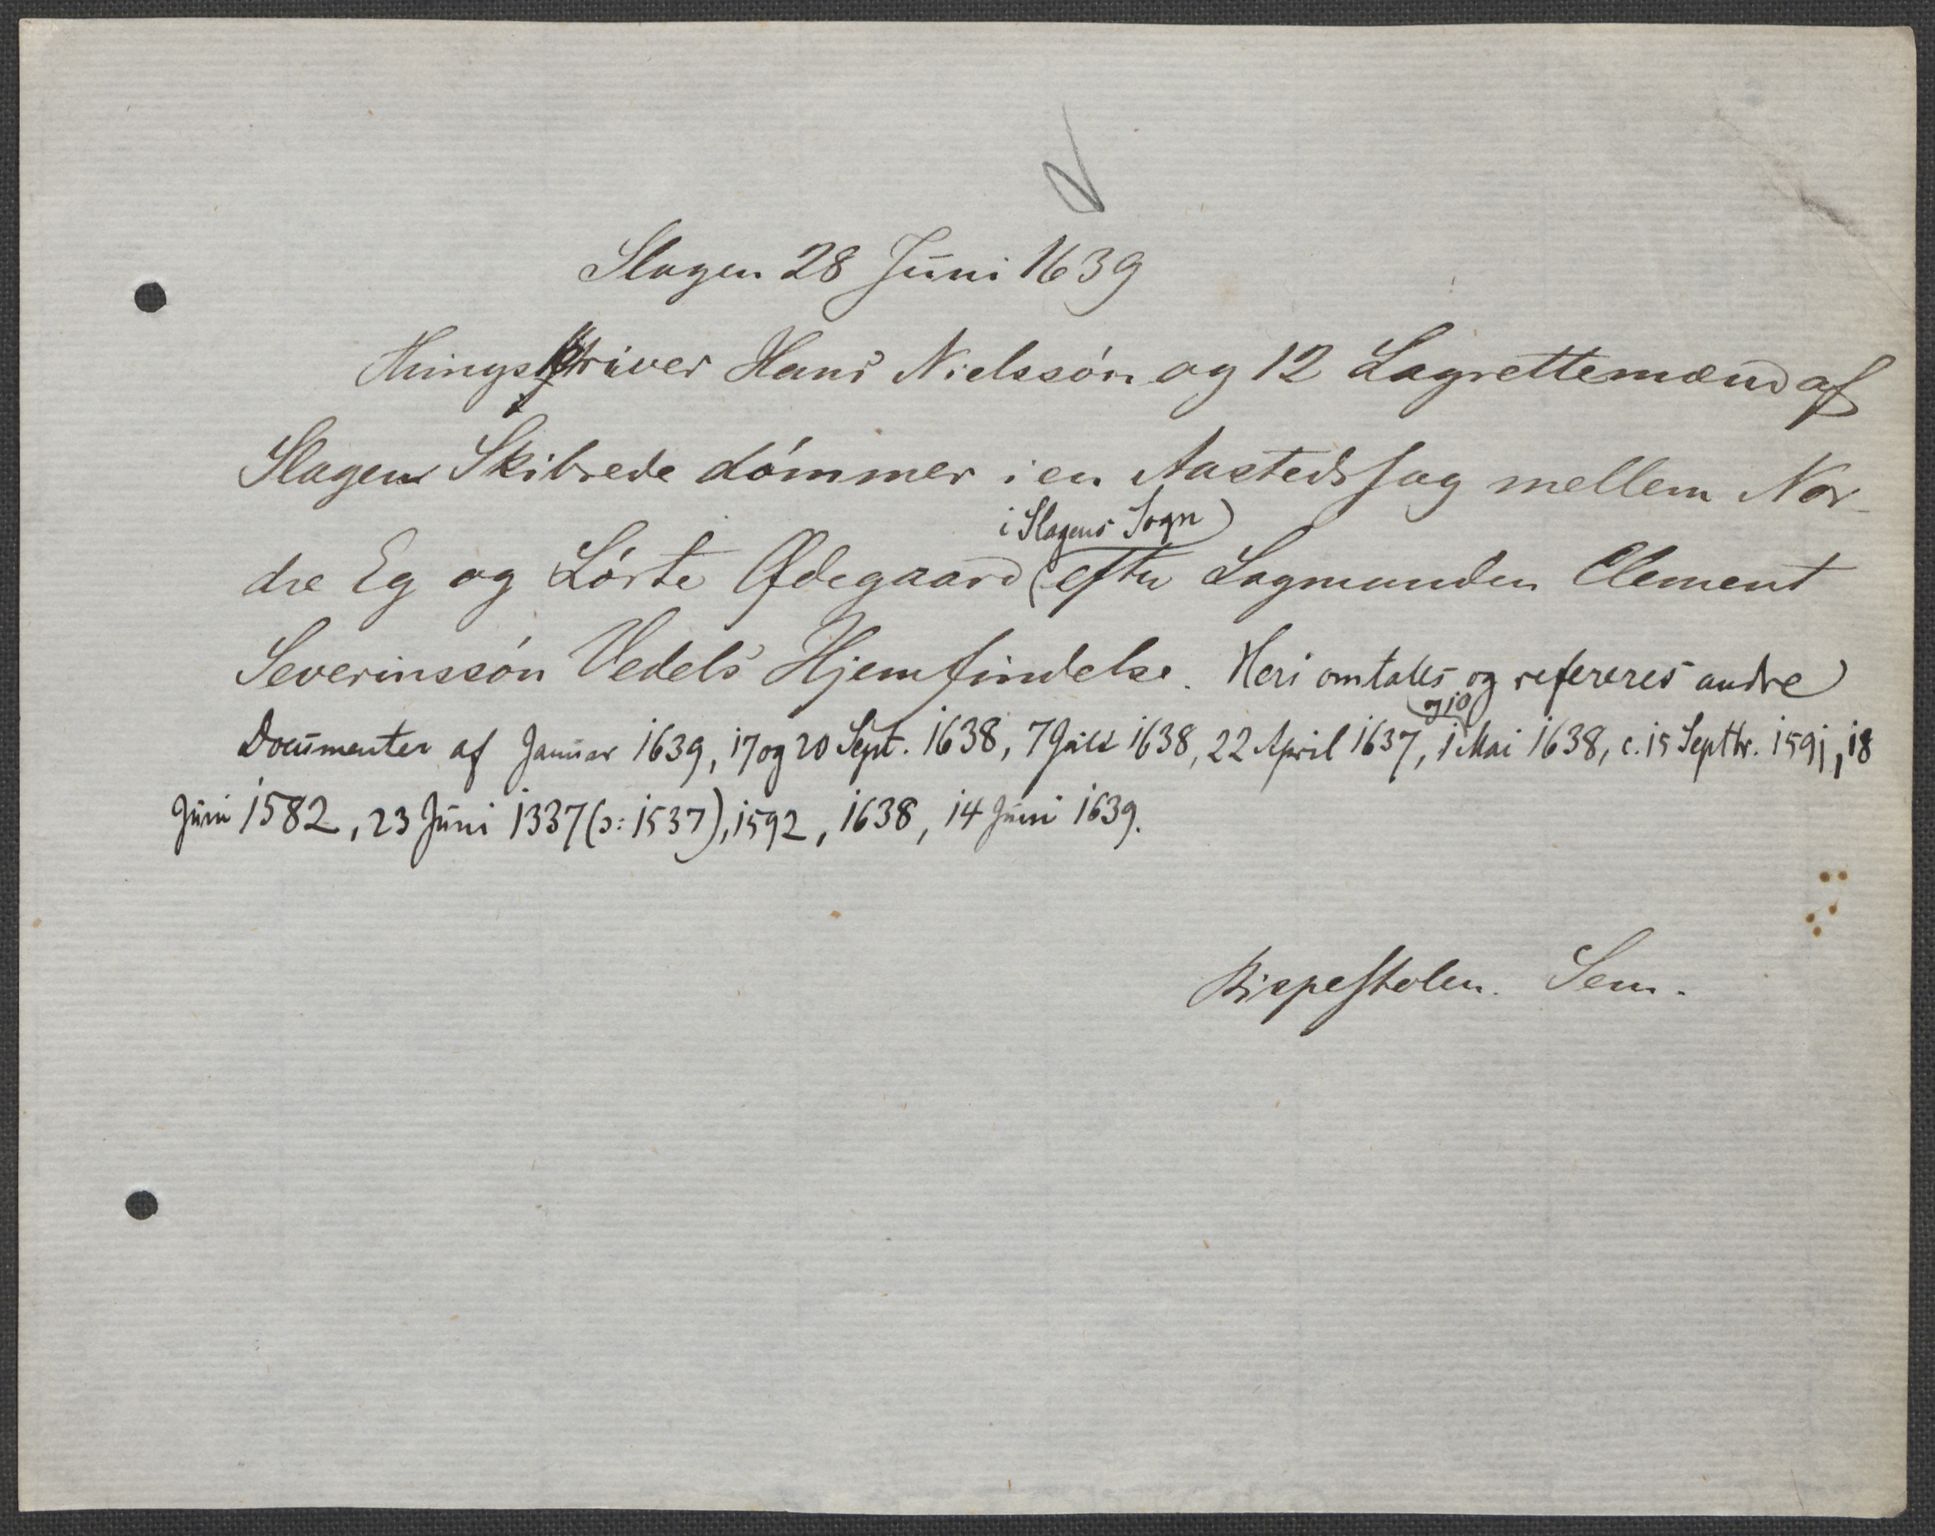 Slagen 28 Juni 1639
Thingskriver Hans Nielssøn og 12 Lagrettemænd af
Slagens Skibrede dømmer i en Aastedssag mellem Nor-
dre Eg og Lørte Ødegaard (i Slagens Sogn) efter Lagmanden Clement
Severinssøn Vedels Hjemfindelse. Heri omtales og refereres andre
Documenter af Januar 1639, 17 og 20 Sept. 1638, 7 Juli 1638, 22 April 1637, 1 og 10 Mai 1638, c. 15 Septbr. 1591, 18
Juni 1582, 23 Juni 1337 (ɔ: 1537), 1592, 1638, 14 Juni 1639.
Bispestolen. Sem.